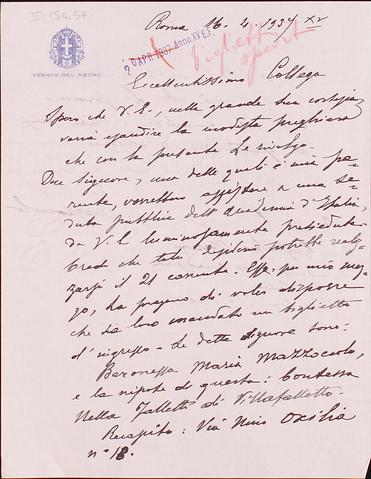 II. 156.57
Roma 16. 4. 1937 XV
SENATO DEL REGNO
20 APR. 1937 Anno XV E.F.
biglietti
Eccellentissimo Collega
Spero che V. E., nella grande sua cortesia,
vorrà esaudire la modesta preghiera
che con la presente Le rivolgo.
Due Signore, una delle quali è mia pa-
rente, vorrebbero assistere a una se-
duta pubblica dell'Accademia d'Italia,
da V. E. luminosamente presieduta.
Credo che tale desiderio potrebbe realiz-
zarsi il 21 corrente. Esse, per mio mez-
zo, La pregano di voler disporre
che sia loro mandato un biglietto
d'ingresso. Le dette signore sono:
Baronessa Maria Mazzoccolo,
e la nipote di questa: Contessa
Nella Falletti di Villafalletto.
Recapito: Via Nino Oxilia
n° 18.